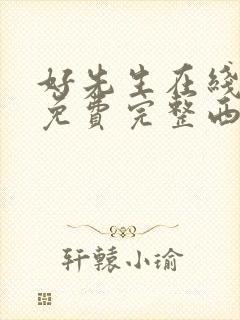 好先生在线
免费完整西
轩辕小瑜